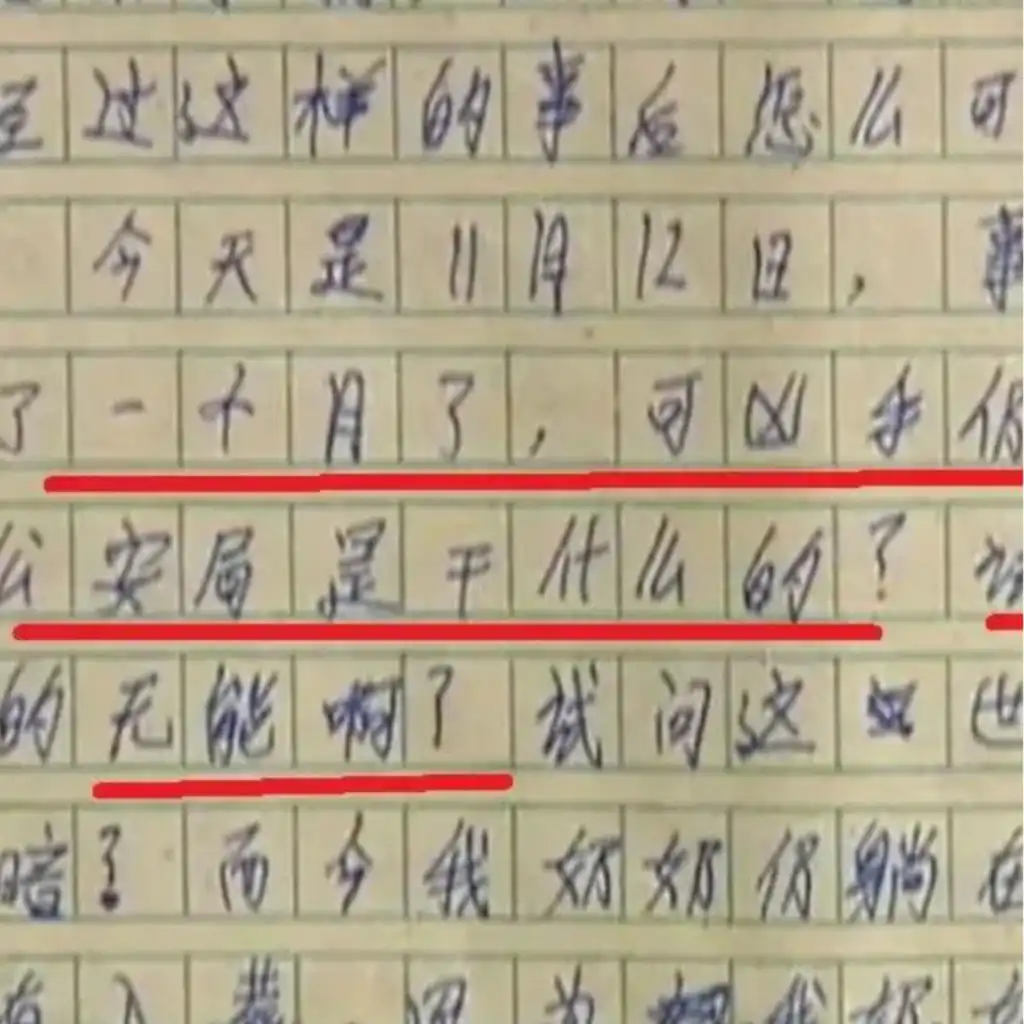 过这样的事后怎么可
今天是11月12日,事
了一个月了,可凶手仍
公安局是干什么的?
的无能啊?试问这世
暗?而今我奶奶仍躺在
有入葬,因为我奶